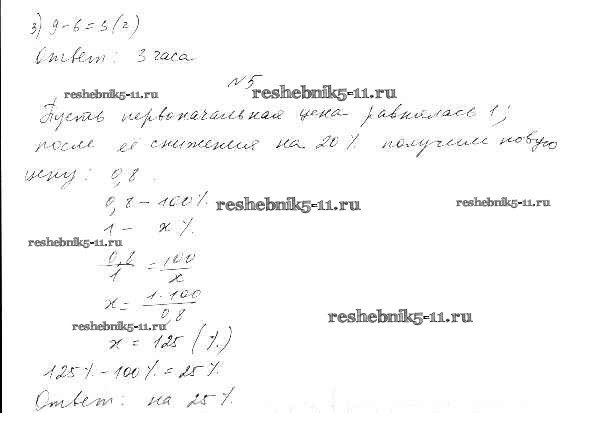 3) 9-6=3(г)
Ответ: 3 часа
reshebnik5-11.ru
№5
reshebnik5-11.ru
Пусть первоначальная цена равнялась 1;
после её снижения на 20% получим новую
цену: 0,8.
0,8 - 100%.
reshebnik5-11.ru
reshebnik5-11.ru
1 - x%.
reshebnik5-11.ru
0,8/1 = 100/x
x = 1·100/0,8
reshebnik5-11.ru
reshebnik5-11.ru
x = 125 (%)
125% - 100% = 25%
Ответ: на 25%.